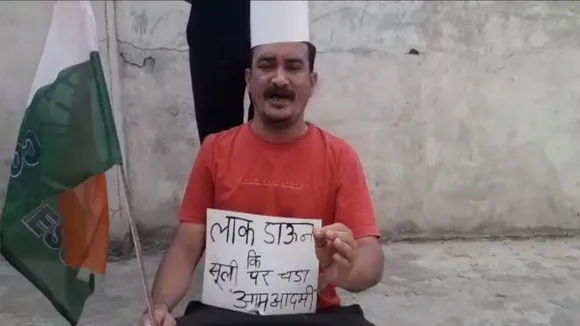 लाक डाऊन
कि
सूली पर चडा
"आम आदमी"